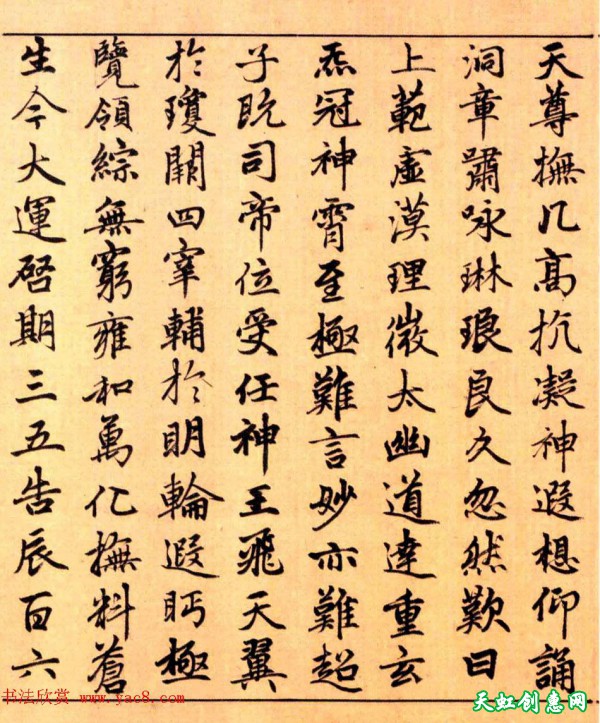 天尊撫几高抗凝神遐想仰誦
洞章嘯咏琳琅良久忽然歎曰
上範虛漠理微太幽道達重玄
炁冠神霄至極難言妙亦難超
子既司帝位受任神王飛天翼
於瓊闕四宰輔於明輪遐眄極
覽領綜無窮雍和萬化撫料蒼
生今大運啓期三五告辰百六
书法欣赏 www.yac8.com
天虹创意网